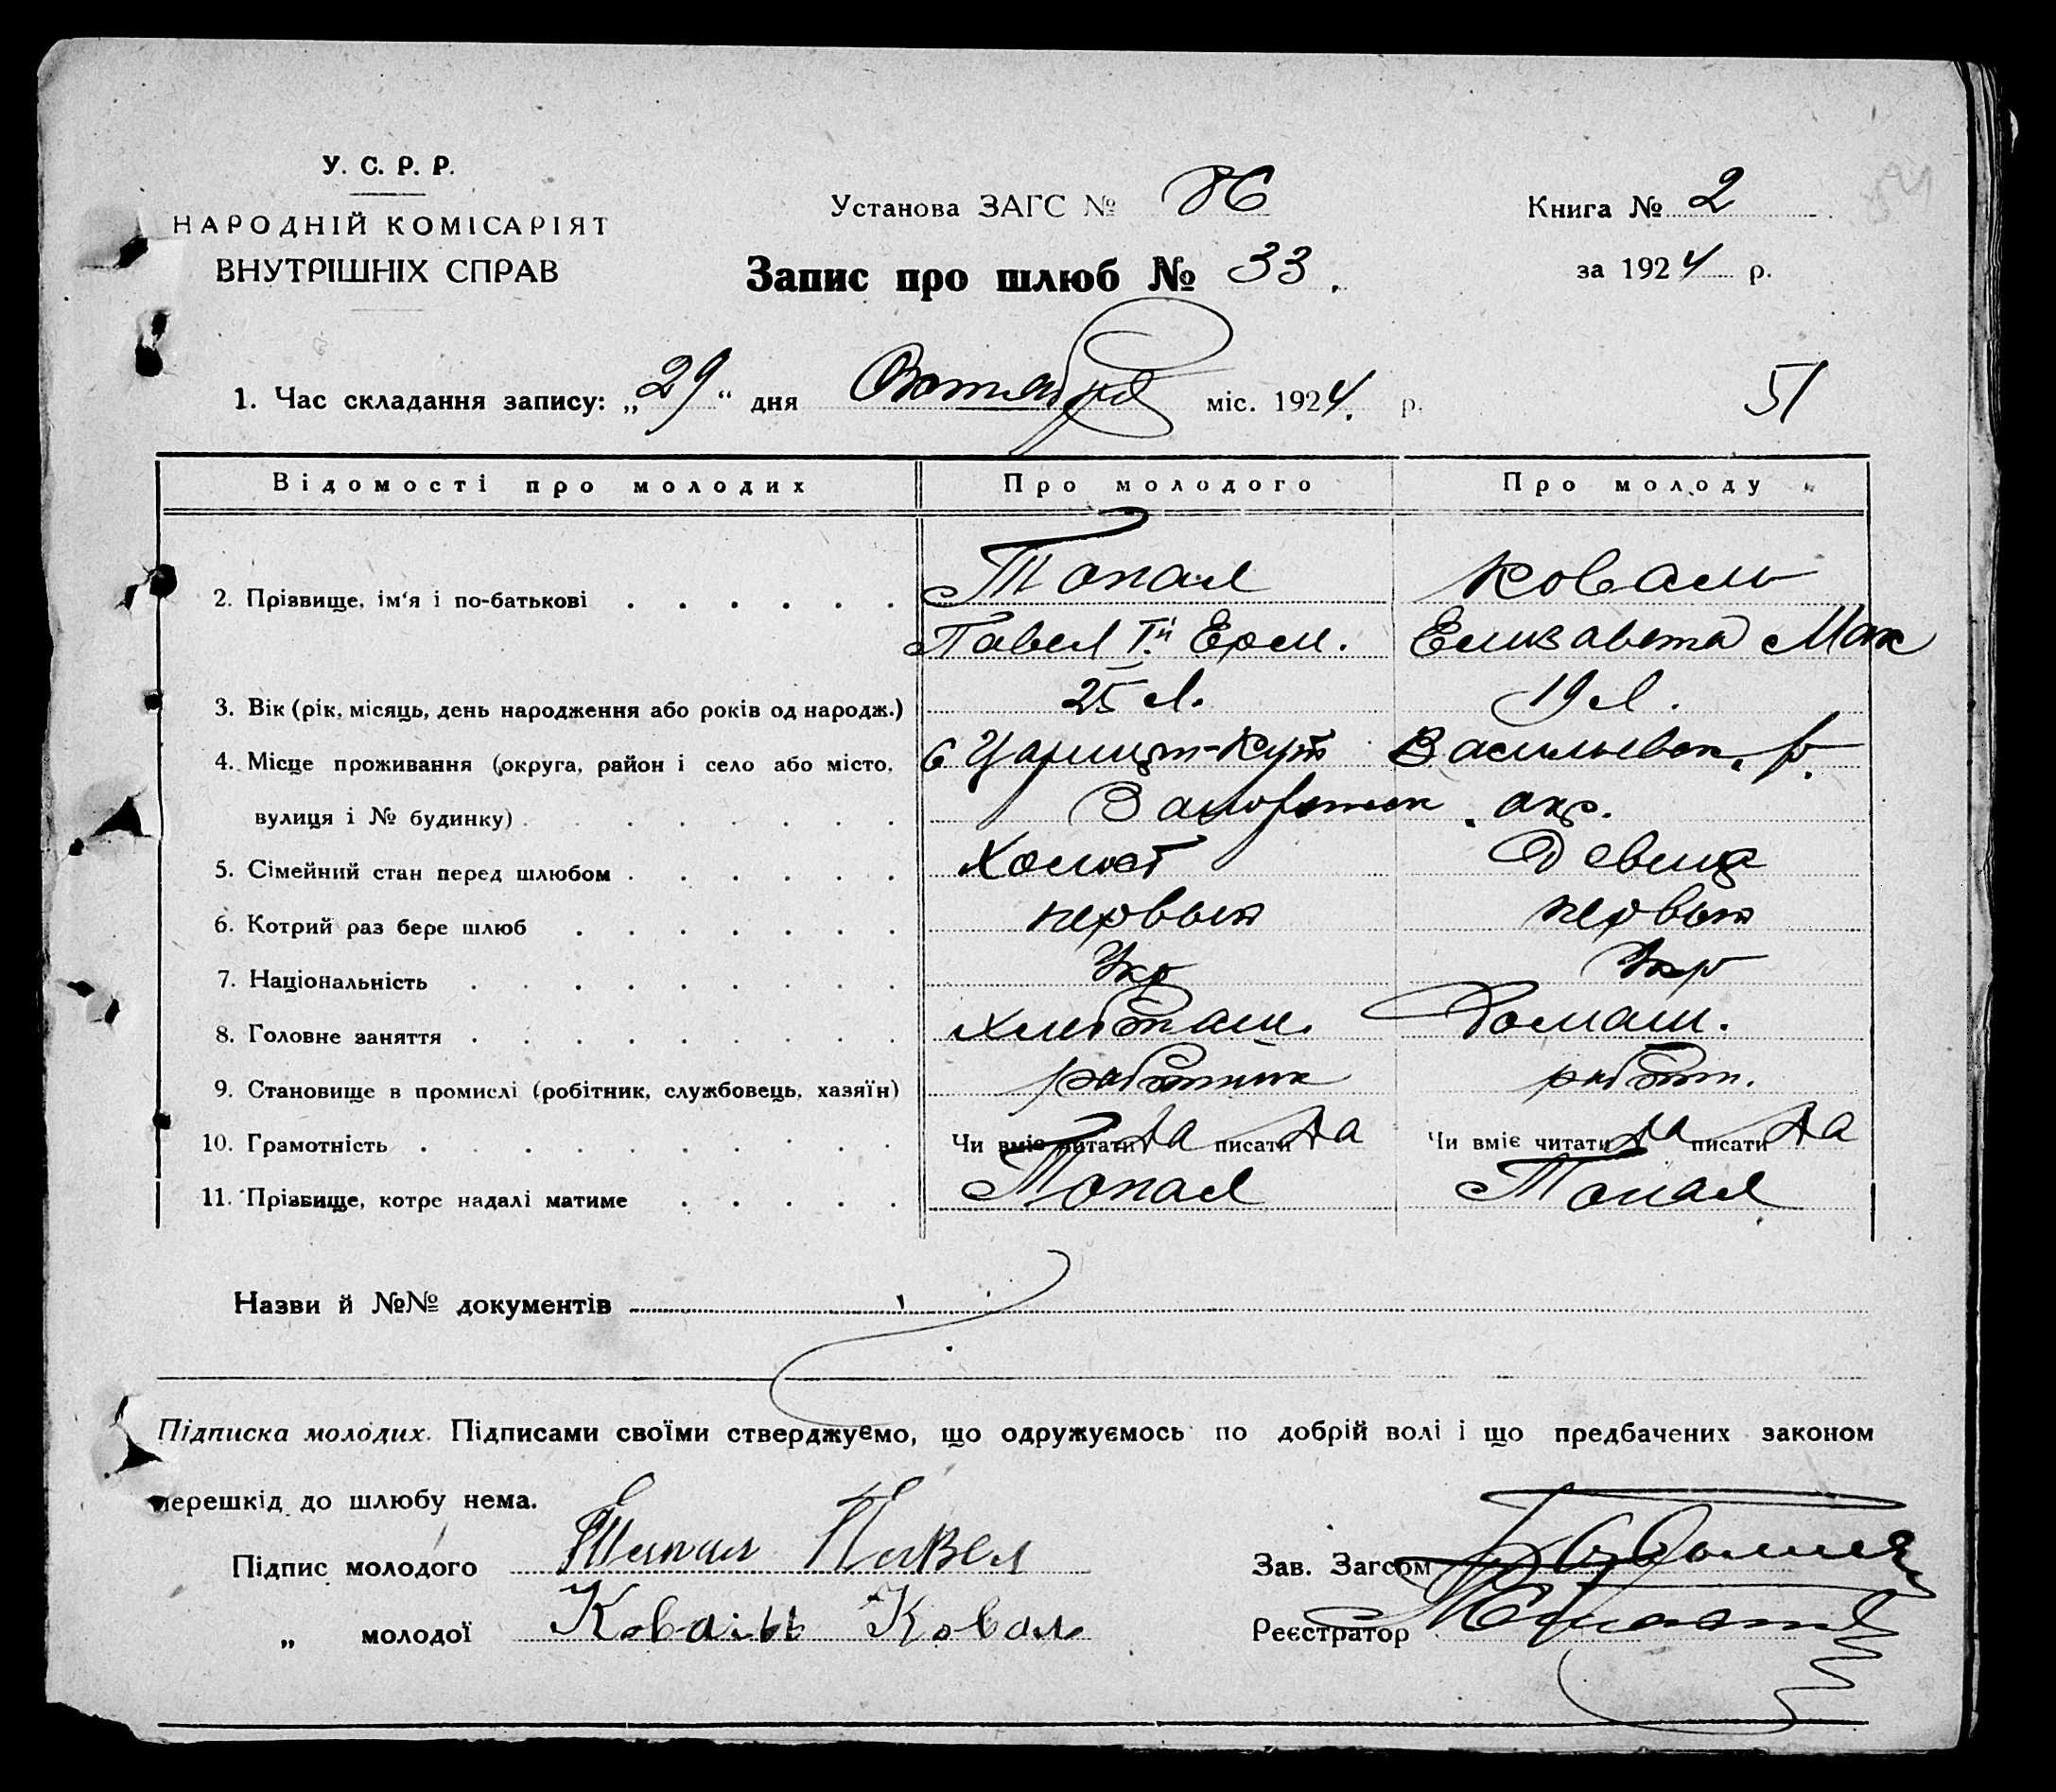 У. С. Р. Р.
НАРОДНІЙ КОМІСАРІЯТ
ВНУТРІШНІХ СПРАВ
Установа ЗАГС № 86
Книга № 2
Запис про шлюб № 33.
за 1924 р.
1. Час складання запису: „29“ дня Октября міс. 1924. р.
51
Відомості про молодих Про молодого Про молоду
2. Прізвище, ім'я і по-батькові Топал Коваль
Павел Iй Ерм. Елизавета Мак
3. Вік (рік, місяць, день народження або років од народж.) 25 л. 19 л.
4. Місце проживання (округа, район і село або місто, с Царицын-Кут Васильевск. р.
вулиця і № будинку) Запорожск. окр.
5. Сімейний стан перед шлюбом Холост Девица
6. Котрий раз бере шлюб первый первый
7. Національність Укр Укр
8. Головне заняття хлебопаш. Домаш.
9. Становище в промислі (робітник, службовець, хазяїн) работник работн.
10. Грамотність Чи вміє читати Да писати Да Чи вміє читати Да писати Да
11. Прізвище, котре надалі матиме Топал Топал
Назви й №№ документів
Підписка молодих. Підписами своїми стверджуємо, що одружуємось по добрій волі і що предбачених законом
перешкід до шлюбу нема.
Підпис молодого Топал Павел
Зав. Загсом
„ молодої Коваль Ковал
Реєстратор